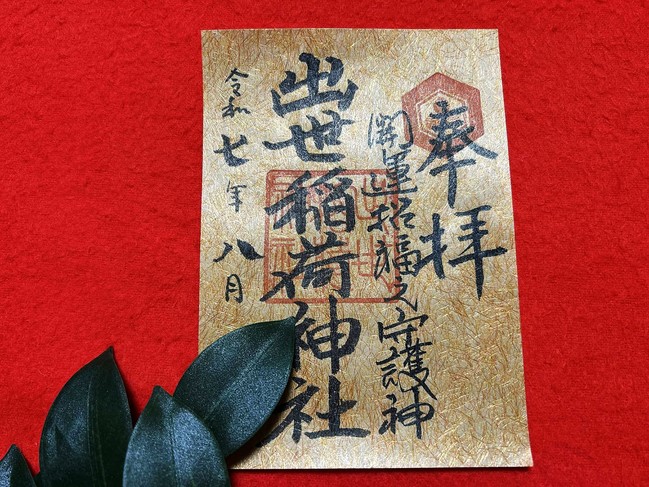 奉拝
開運招福之守護神
出世稲荷神社
令和七年八月